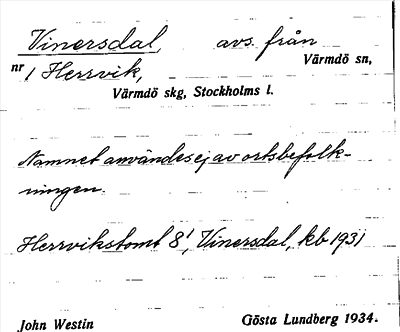 Vinersdal, avs. från
Värmdö sn,
nr 1 Herrvik,
Värmdö skg, Stockholms l.
Namnet användes ej av ortsbefolk-
ningen.
Herrvikstomt 8¹, Vinersdal, kb 1931
John Westin Gösta Lundberg 1934.